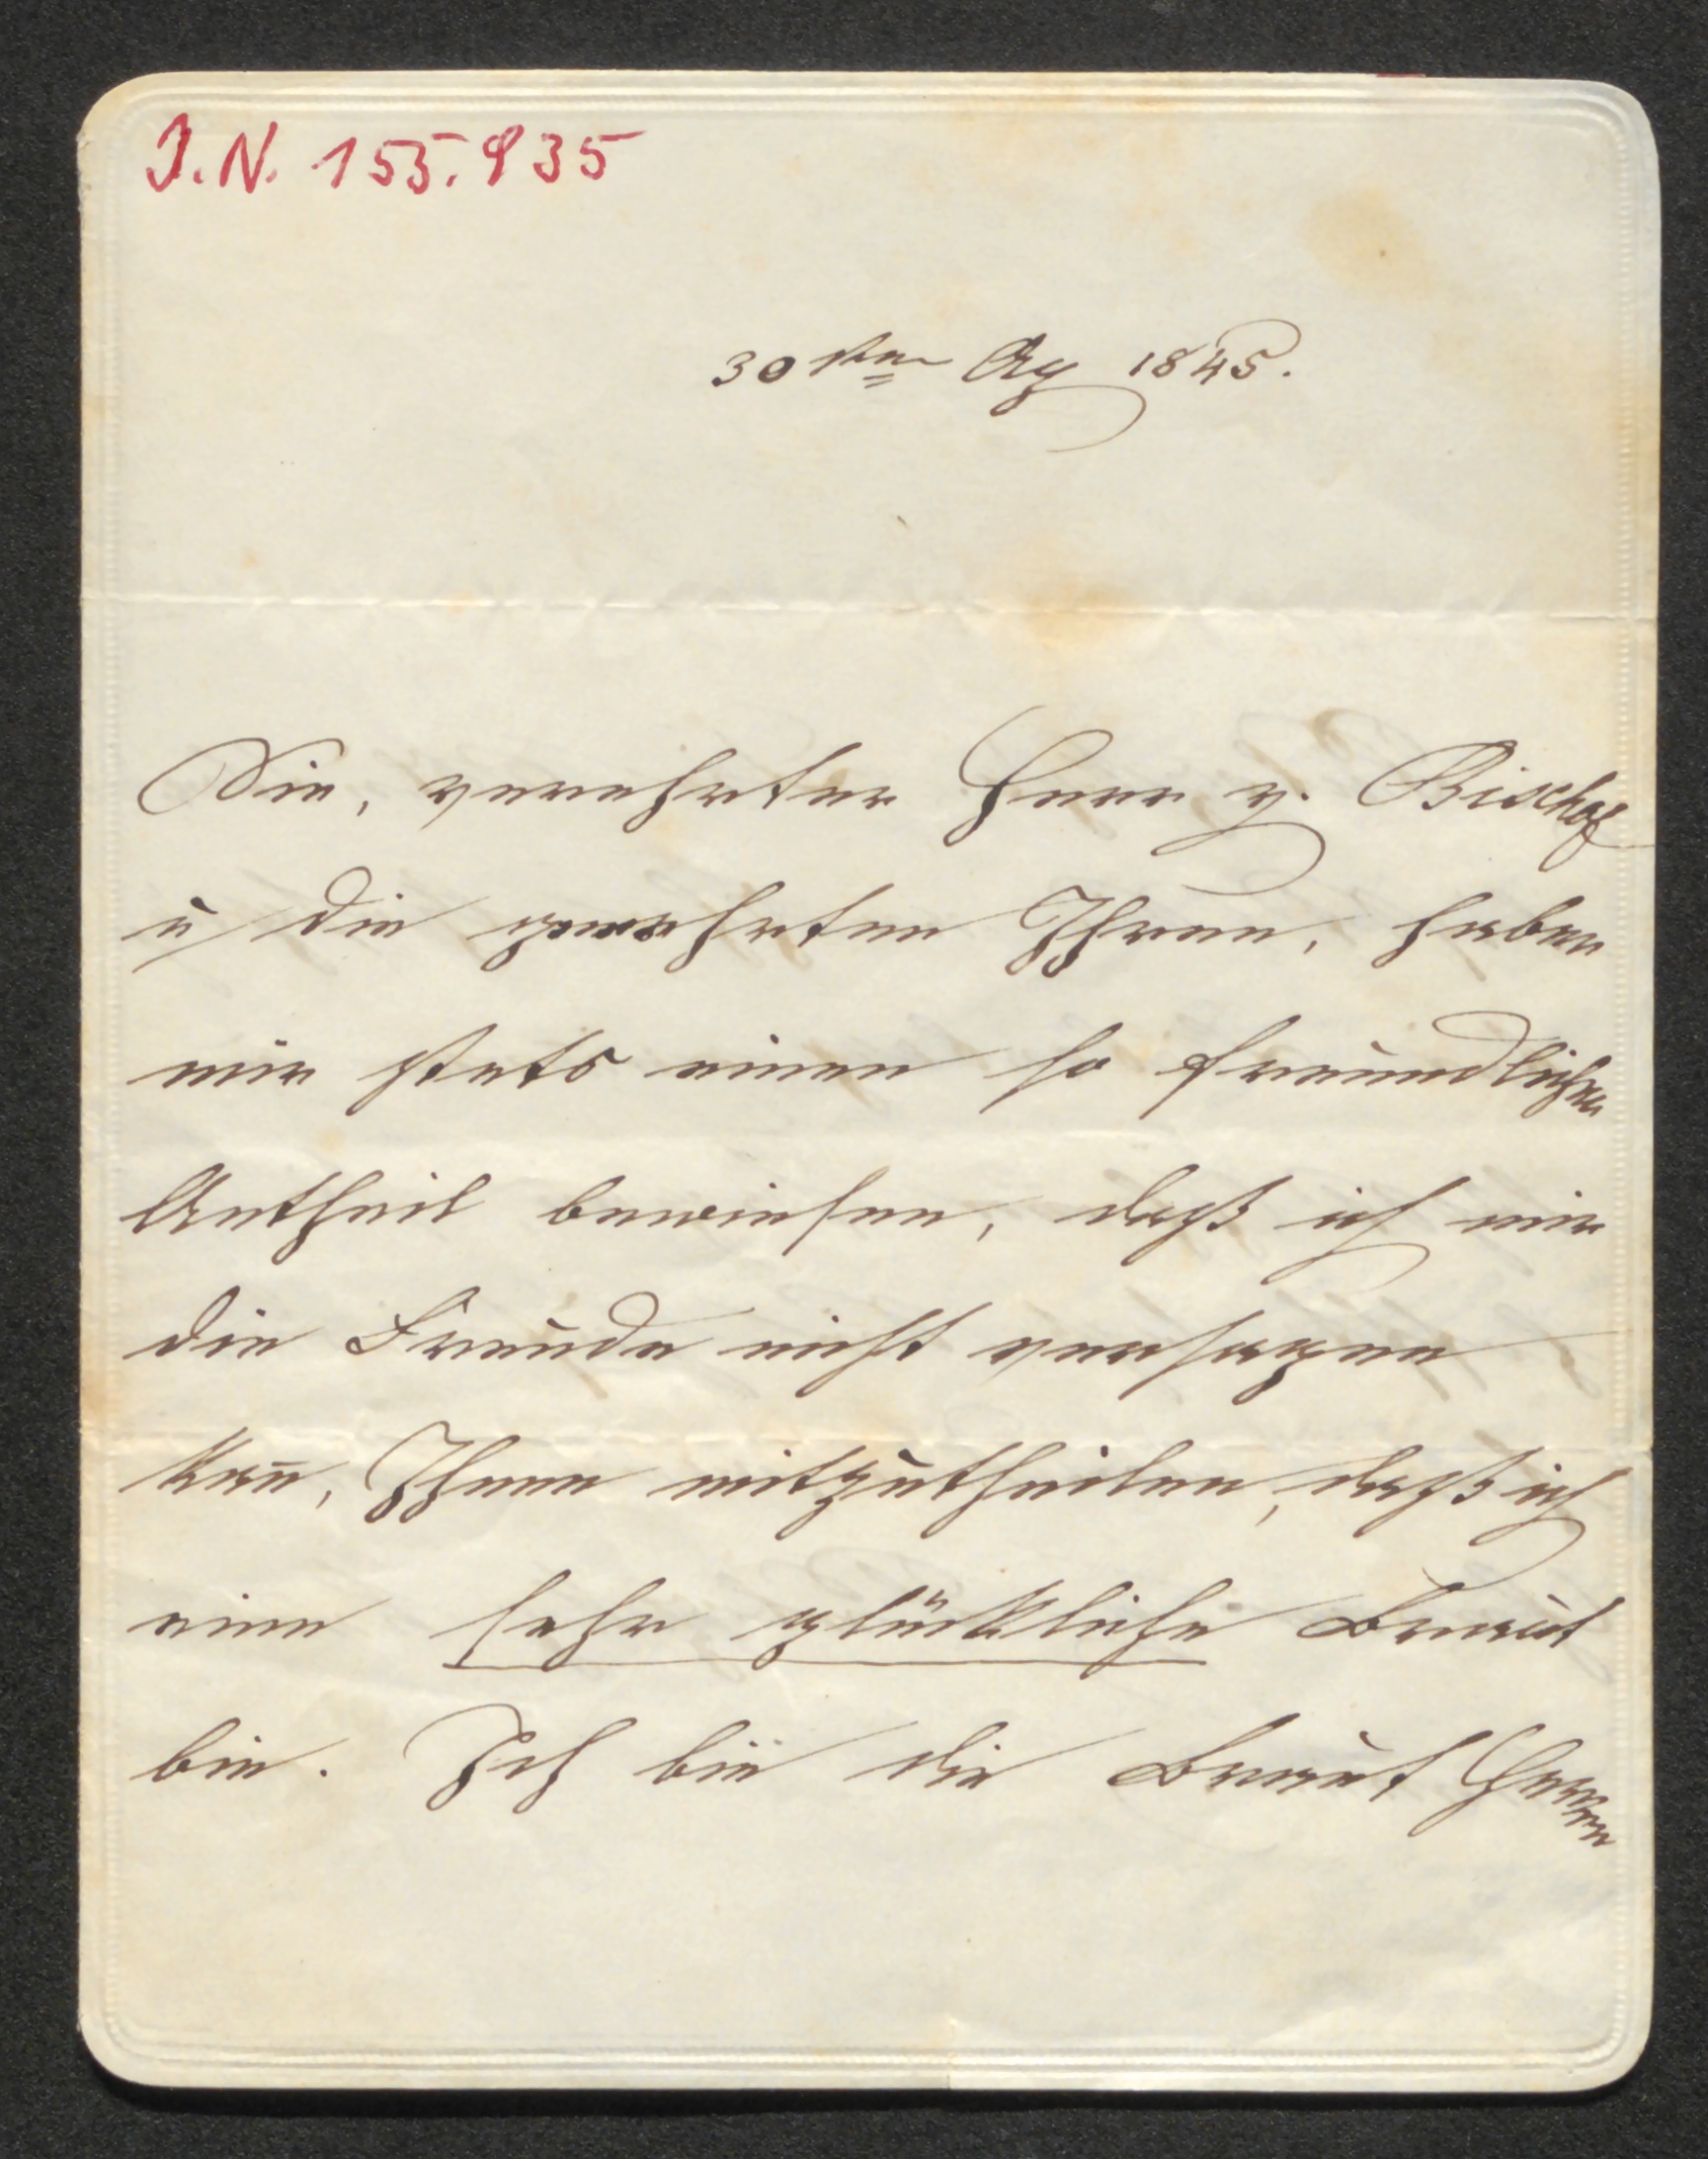 J.N. 155.935
30sten Ag 1845.
Sie, verehrter Herr v. Bischof
u die geehrten Ihren, haben
mir stets einen so freundlichen
Antheil bewiesen, daß ich mir
die Freude nicht versagen
kan̄, Ihnen mitzutheilen, daß ich
eine sehr glückliche Braut
bin. Ich bin die Braut Herrn